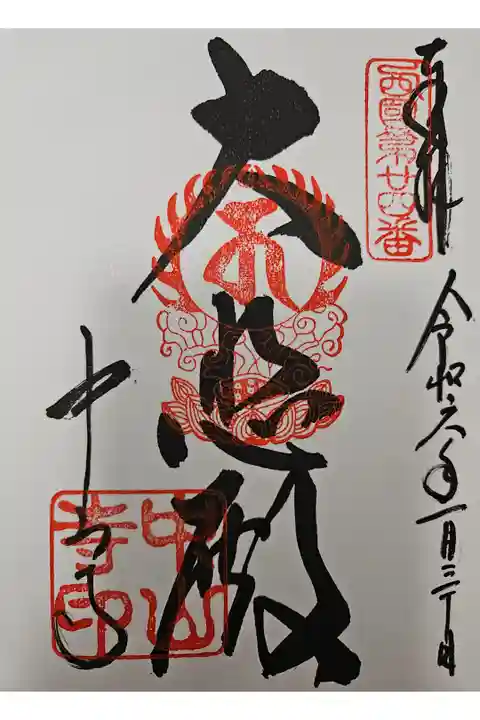 奉拝
西国第廿四番
令和六年一月三十日
大悲殿
中山寺
中山寺印